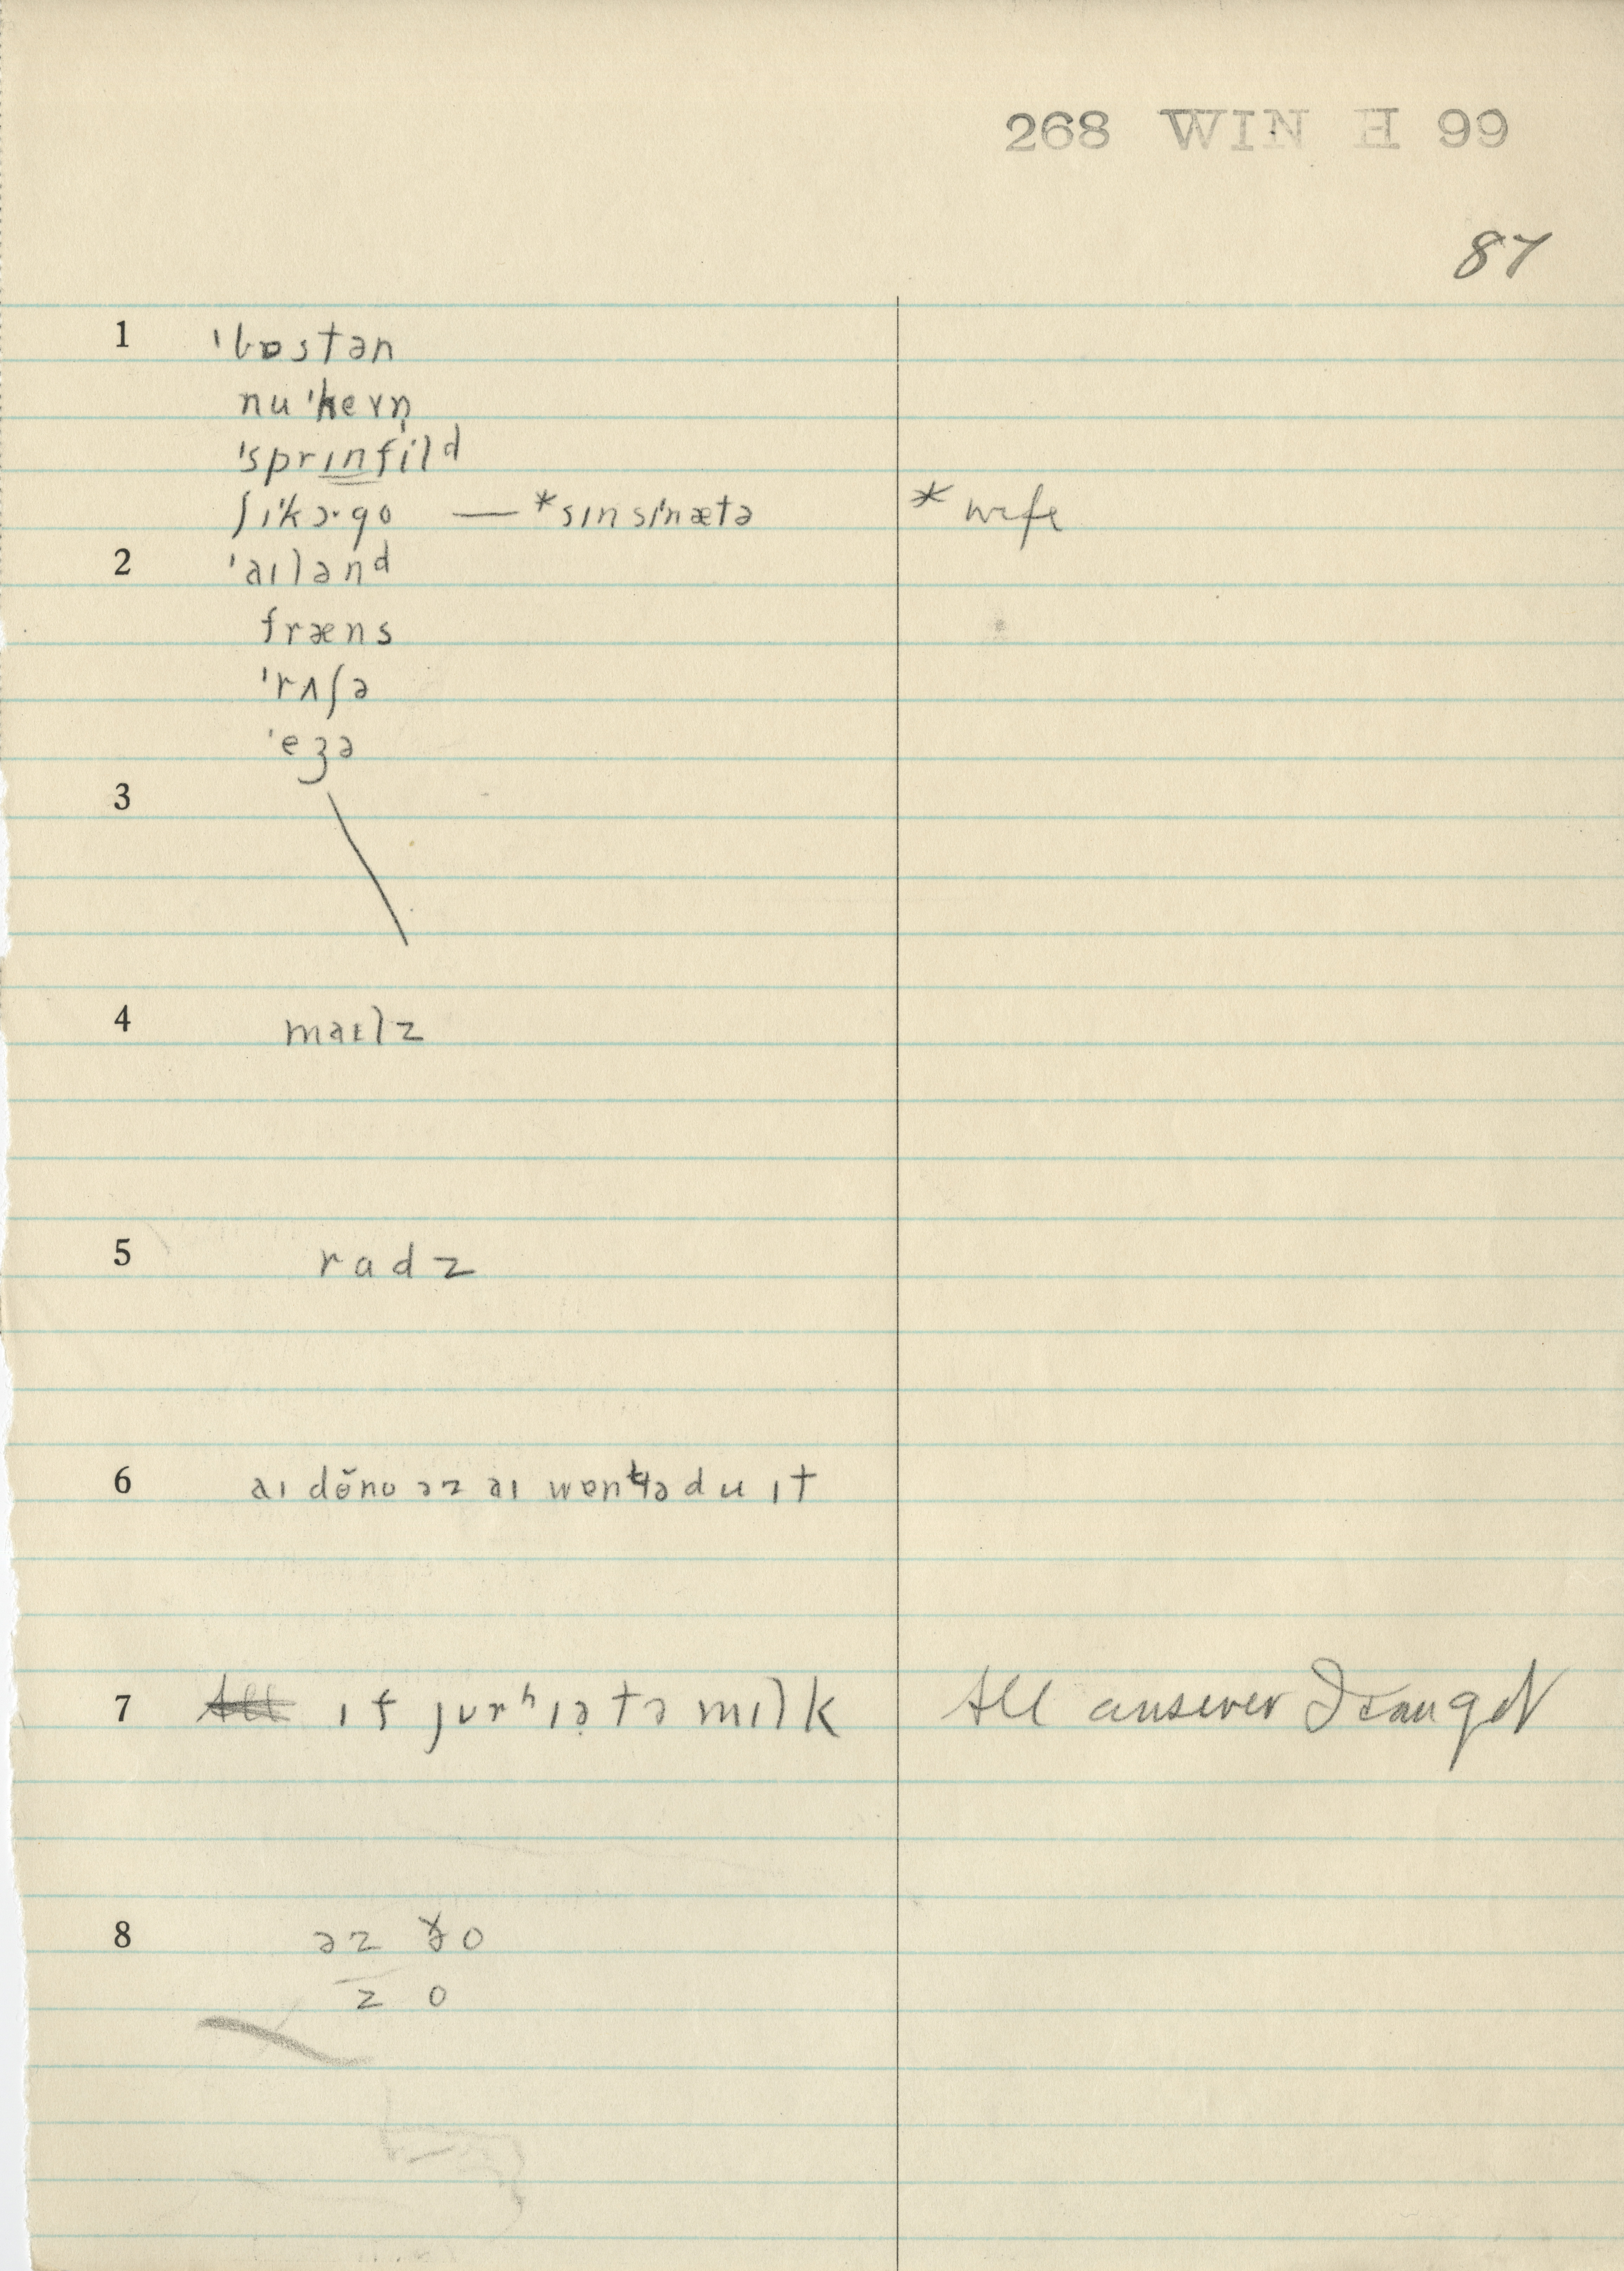 268 WIN H 99
87
1 ˈbɒstən
nuˈhevn̩
ˈsprɪnfild
ʃɪˈkɔ·go — *sɪnsɪˈnætə * wife
2 ˈaɪlənd
fræns
ˈrʌʃə
ˈeʒə
3
4 maɪlz
5 radz
6 aɪ dəno əz aɪ wɒntə du ɪt
7 ɪf jurʰɪə tə mɪlk All answer I can get
8 əz o
z o